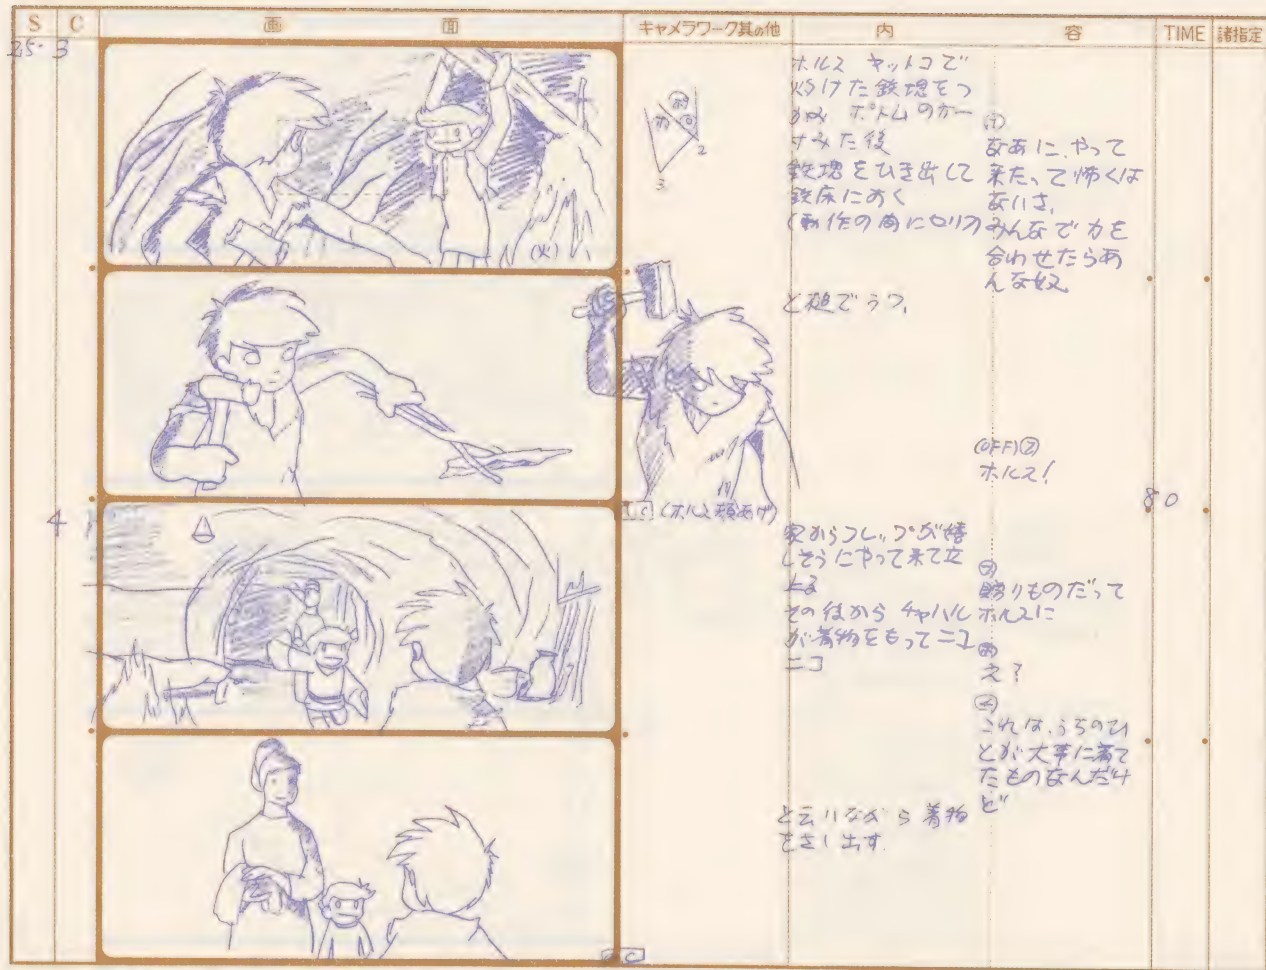 S C 画面 キャメラワーク其の他 内容 TIME 諸指定
25・3
ホルス ヤットコで
焼けた鉄塊をつ
かみ ポトムの方一
すみた後
鉄塊をひき出して
鉄床におく
(動作の間にセリフ
なあに、やって
来たって怖くは
ないさ。
みんなで力を
合わせたらあ
んな奴
(火)
2
3
と槌でうつ。
(OFF)フ
ホルス!
80
C (ホルス顔あげ)
4
家からフレップが嬉
しそうにやって来て立
止る
その後から チャハル
が着物をもってニコ
ニコ
フ
贈りものだって
ホルスに
ホ
え?
チ
これは、うちのひ
とが大事に着て
たものなんだけ
ど
と云いながら着物
をさし出す.
C